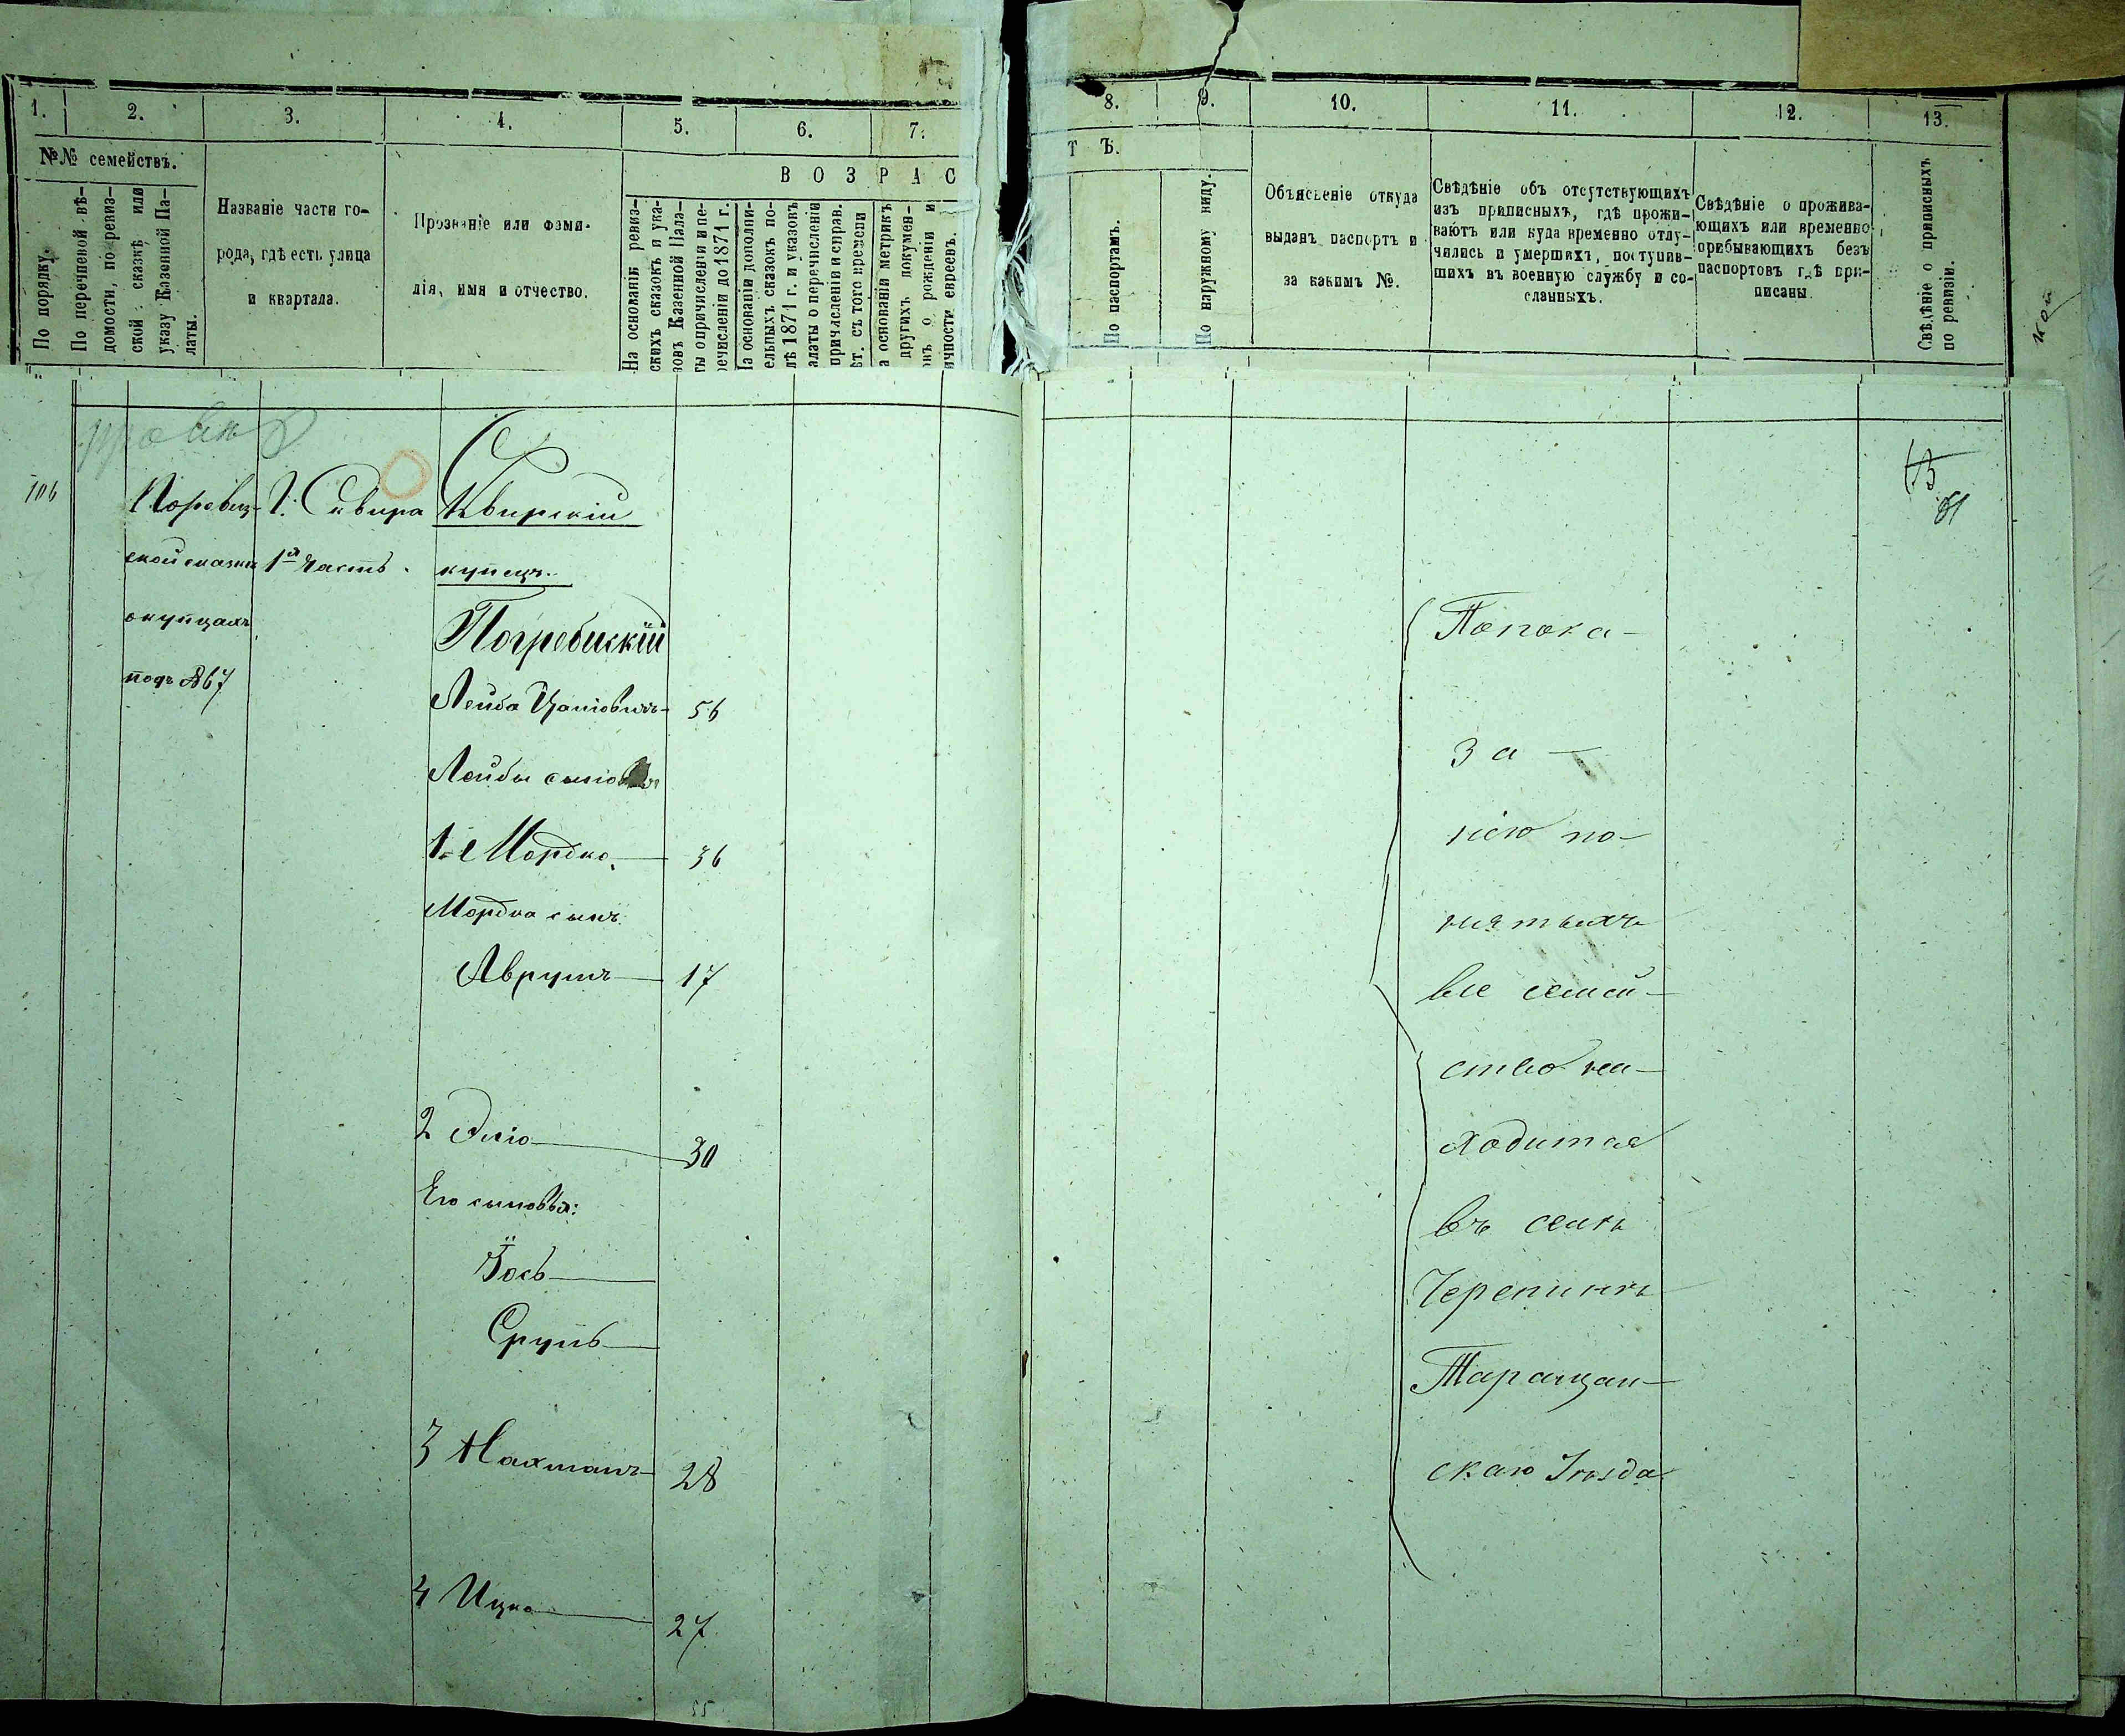 1.
2.
3.
4.
5.
6.
7.
№№ семействъ.
По порядку.
По перечневой вѣ-
домости, по ревиз-
ской сказкѣ или
указу Казенной Па-
латы.
Названіе части го-
рода, гдѣ есть улица
и квартала.
Прозваніе или фами-
лія, имя и отчество.
В О З Р А С
На основаніи ревиз-
скихъ сказокъ и ука-
зовъ Казенной Пала-
ты о причисленіи и пе-
речисленіи до 1871 г.
На основаніи дополни-
ельныхъ сказокъ по-
лѣ 1871 г. и указовъ
алаты о перечисленіи
причисленіи и справ.
ѣт. съ того времени
а основаніи метрикъ
другихъ докумен-
о рожденіи и
ичности евреевъ.
106
По ревиз-
ской сказки
о купцахъ
подъ №67
Г. Сквира
1я часть.
Сквирскій
купецъ.
Погребискій
Лейба 56
Лейбы сыновья
1й Мордко 36
Мордка сынъ
Аврумъ 17
2 Элio 30
Его сыновья:
Іось
Сруль
3 Нахманъ 28
4 Ицко 27
8.
9.
10.
11.
12.
13.
Т Ъ.
По паспортамъ.
По наружному виду.
Объясненіе откуда
выданъ паспортъ и
за какимъ №.
Свѣдѣніе объ отсутствующихъ
изъ приписныхъ, гдѣ прожи-
ваютъ или куда временно отлу-
чились и умершихъ, поступив-
шихъ въ военную службу и со-
сланныхъ.
Свѣдѣніе о прожива-
ющихъ или временно
пребывающихъ безъ
паспортовъ гдѣ при-
писаны.
Свѣдѣніе о приписныхъ
по ревизіи.
По пока-
за-
нію по-
нятыхъ
все семей-
ство на-
ходится
въ селѣ
Черепинкѣ
Таращан-
скаго Уѣзда